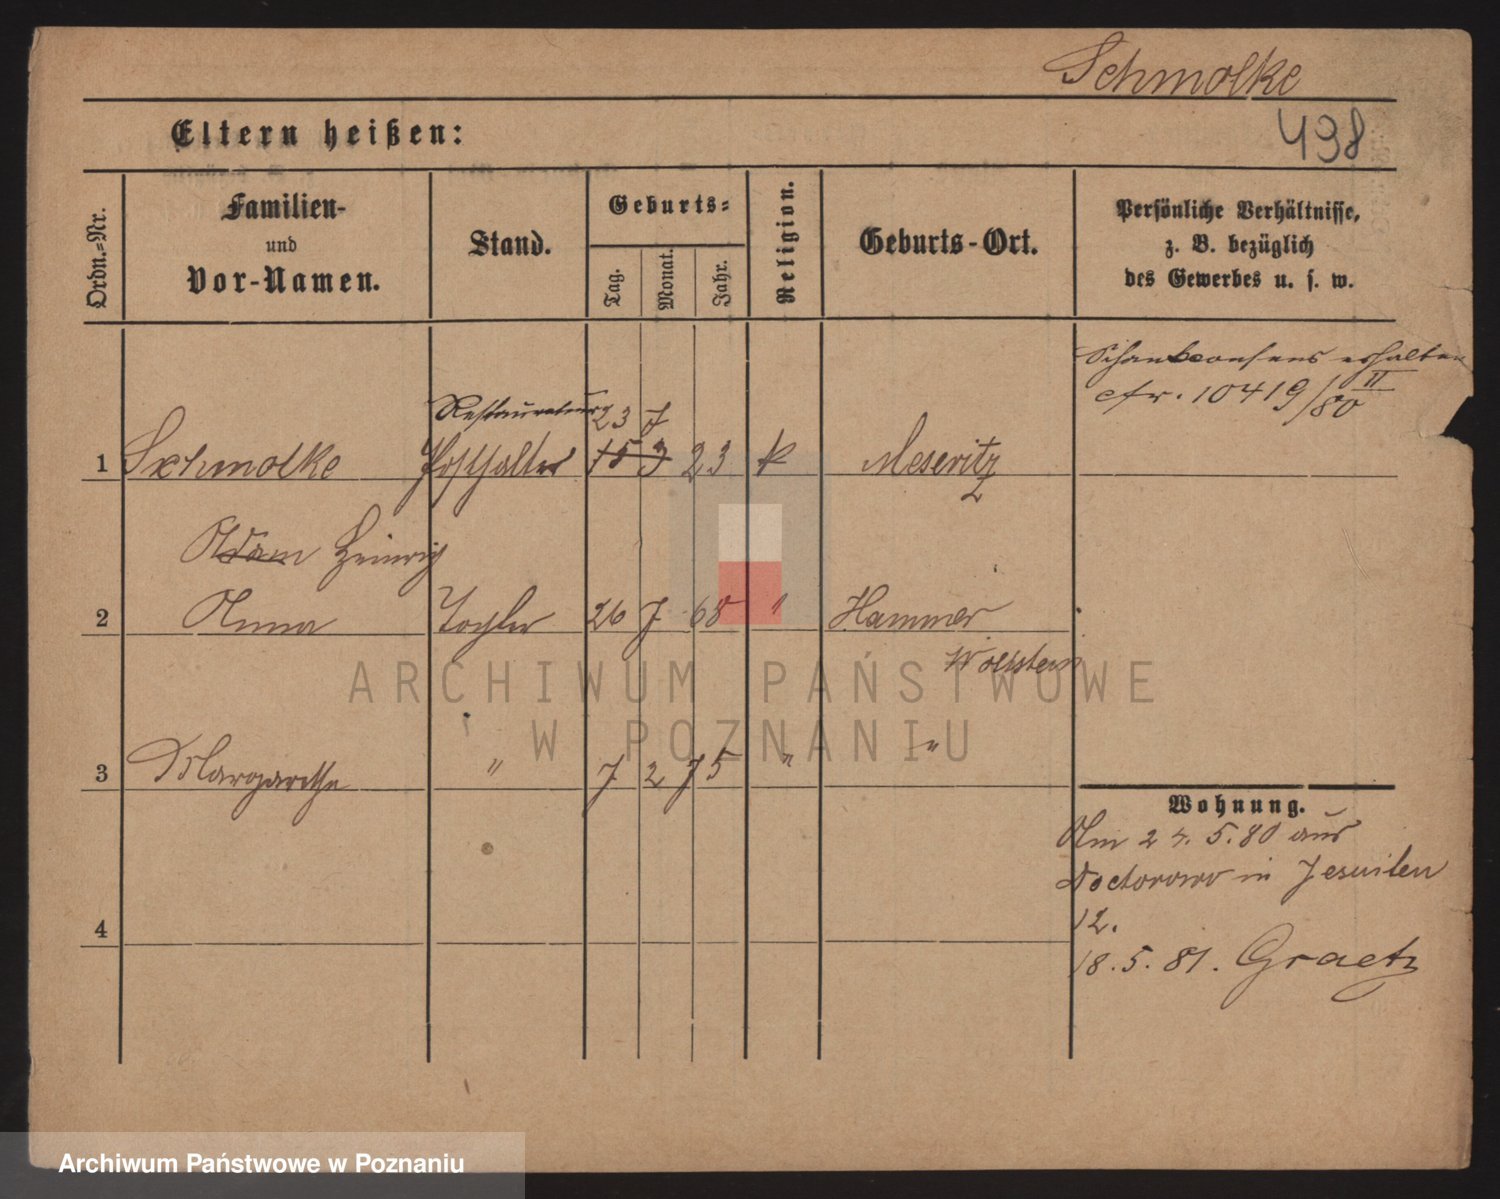 Schmolke
498
Eltern heißen:
Ordn.-Nr.
Familien-
und
Vor-Namen.
Stand.
Geburts-
Tag.
Monat.
Jahr.
Religion.
Geburts-Ort.
Persönliche Verhältnisse,
z. B. bezüglich
des Gewerbes u. s. w.
Schankconsens erhalten
cfr. 10419/II 80
Restaurateur 23 7
1 Schmolke Posthalter 15 3 23 k Meseritz
Adam Heinrich
2 Anna Tochter 26 7 68 " Hammer
Wollstein
3 Margarethe " 7 2 75 " "
Wohnung.
Am 24.5.80 aus
Doctorowo in Jesuiten
12.
4
18.5.81. Graetz
ARCHIWUM PAŃSTWOWE
W POZNANIU
Archiwum Państwowe w Poznaniu